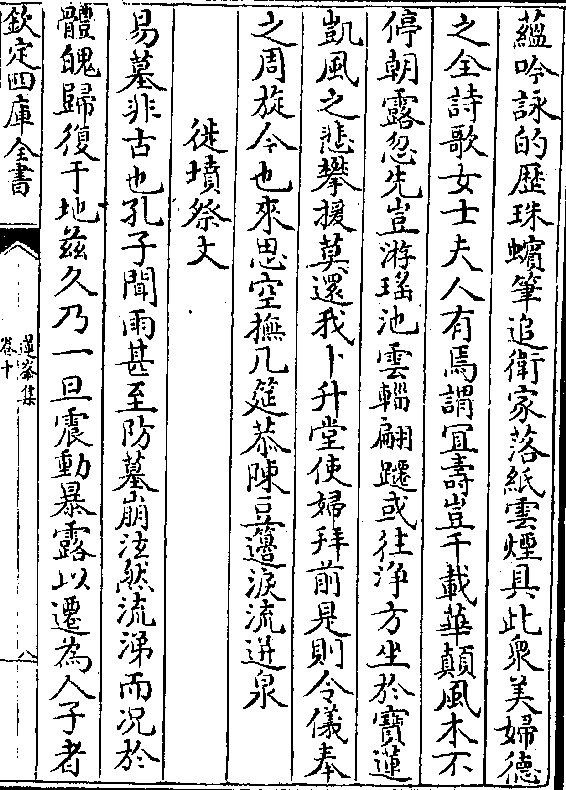 蘊吟詠的歷珠蠙筆追衛家落紙雲煙具此衆美婦德
之全詩歌女士夫人有焉謂宜壽豈千載華顛風木不
停朝露忽先豈游瑤池雲輜翩躚或往淨方坐於寶蓮
凱風之悲攀援莫還我卜升堂使婦拜前是則令儀奉
之周旋今也來思空撫几筵恭陳豆籩淚流迸泉
徙墳祭文
易墓非古也孔子聞雨甚至防墓崩泫然流涕而况於
體魄歸復于地兹久乃一旦震動暴露以遷為人子者
欽定四庫全書
蓮峯集
卷十
八